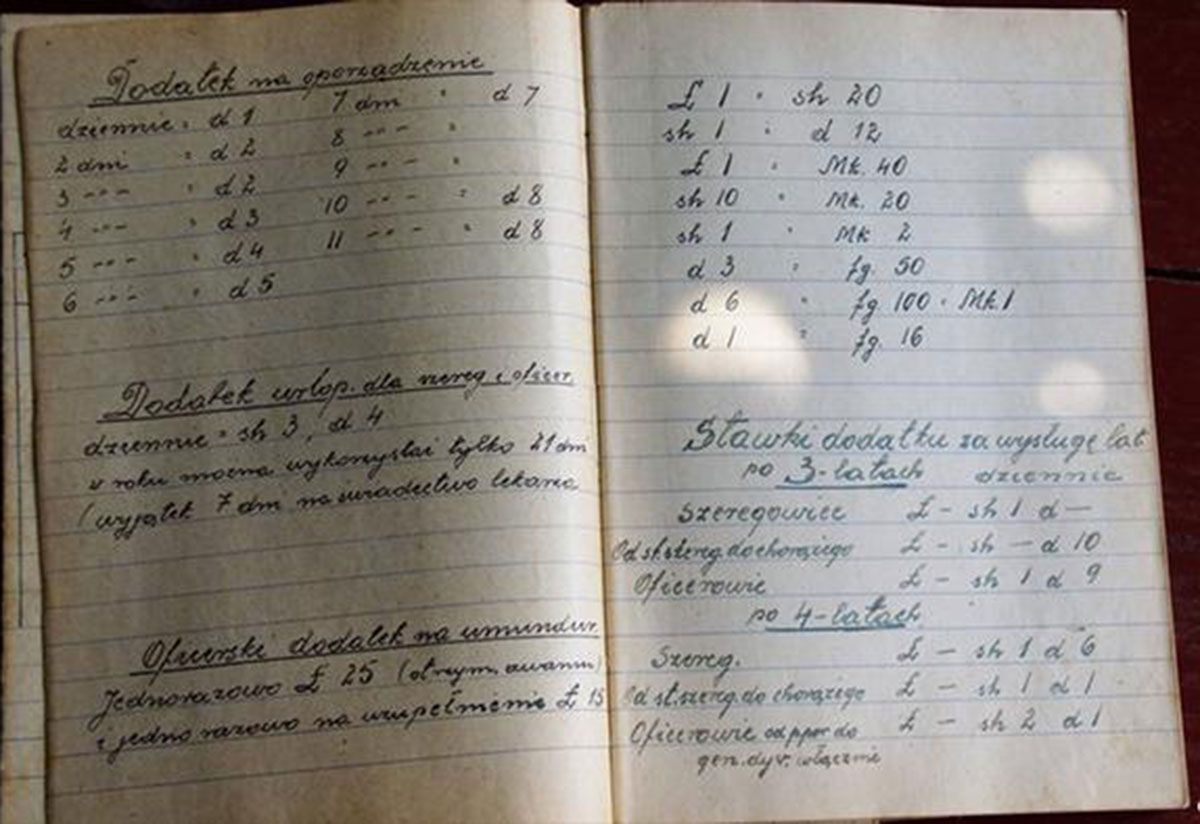 Dodatek na oporządzenie
dziennie = d 1 7 dni = d 7
2 dni = d 2 8 -"- =
3 -"- = d 2 9 -"- =
4 -"- = d 3 10 -"- = d 8
5 -"- = d 4 11 -"- = d 8
6 -"- = d 5
Dodatek urlop. dla szereg i oficer.
dziennie = sh 3, d 4
w roku można wykorzystać tylko 21 dni
(wyjątek 7 dni na świadectwo lekarza
Oficerski dodatek na umundur.
Jednorazowo £ 25 (otrzym. awansu)
i jednorazowo na uzupełnienie £ 15
£ 1 = sh 20
sh 1 = d 12
£ 1 = Mk. 40
sh 10 = Mk. 20
sh 1 = Mk 2
d 3 = fg. 50
d 6 = fg 100 = Mk 1
d 1 = fg. 16
Stawki dodatku za wysługę lat
po 3-latach dziennie
Szeregowiec £ - sh 1 d -
Od st.szereg. do chorążego £ - sh - d 10
Oficerowie £ - sh 1 d 9
po 4-latach
Szereg. £ - sh 1 d 6
Od st.szereg. do chorążego £ - sh 1 d 1
Oficerowie od ppor do £ - sh 2 d 1
gen. dyw. włącznie